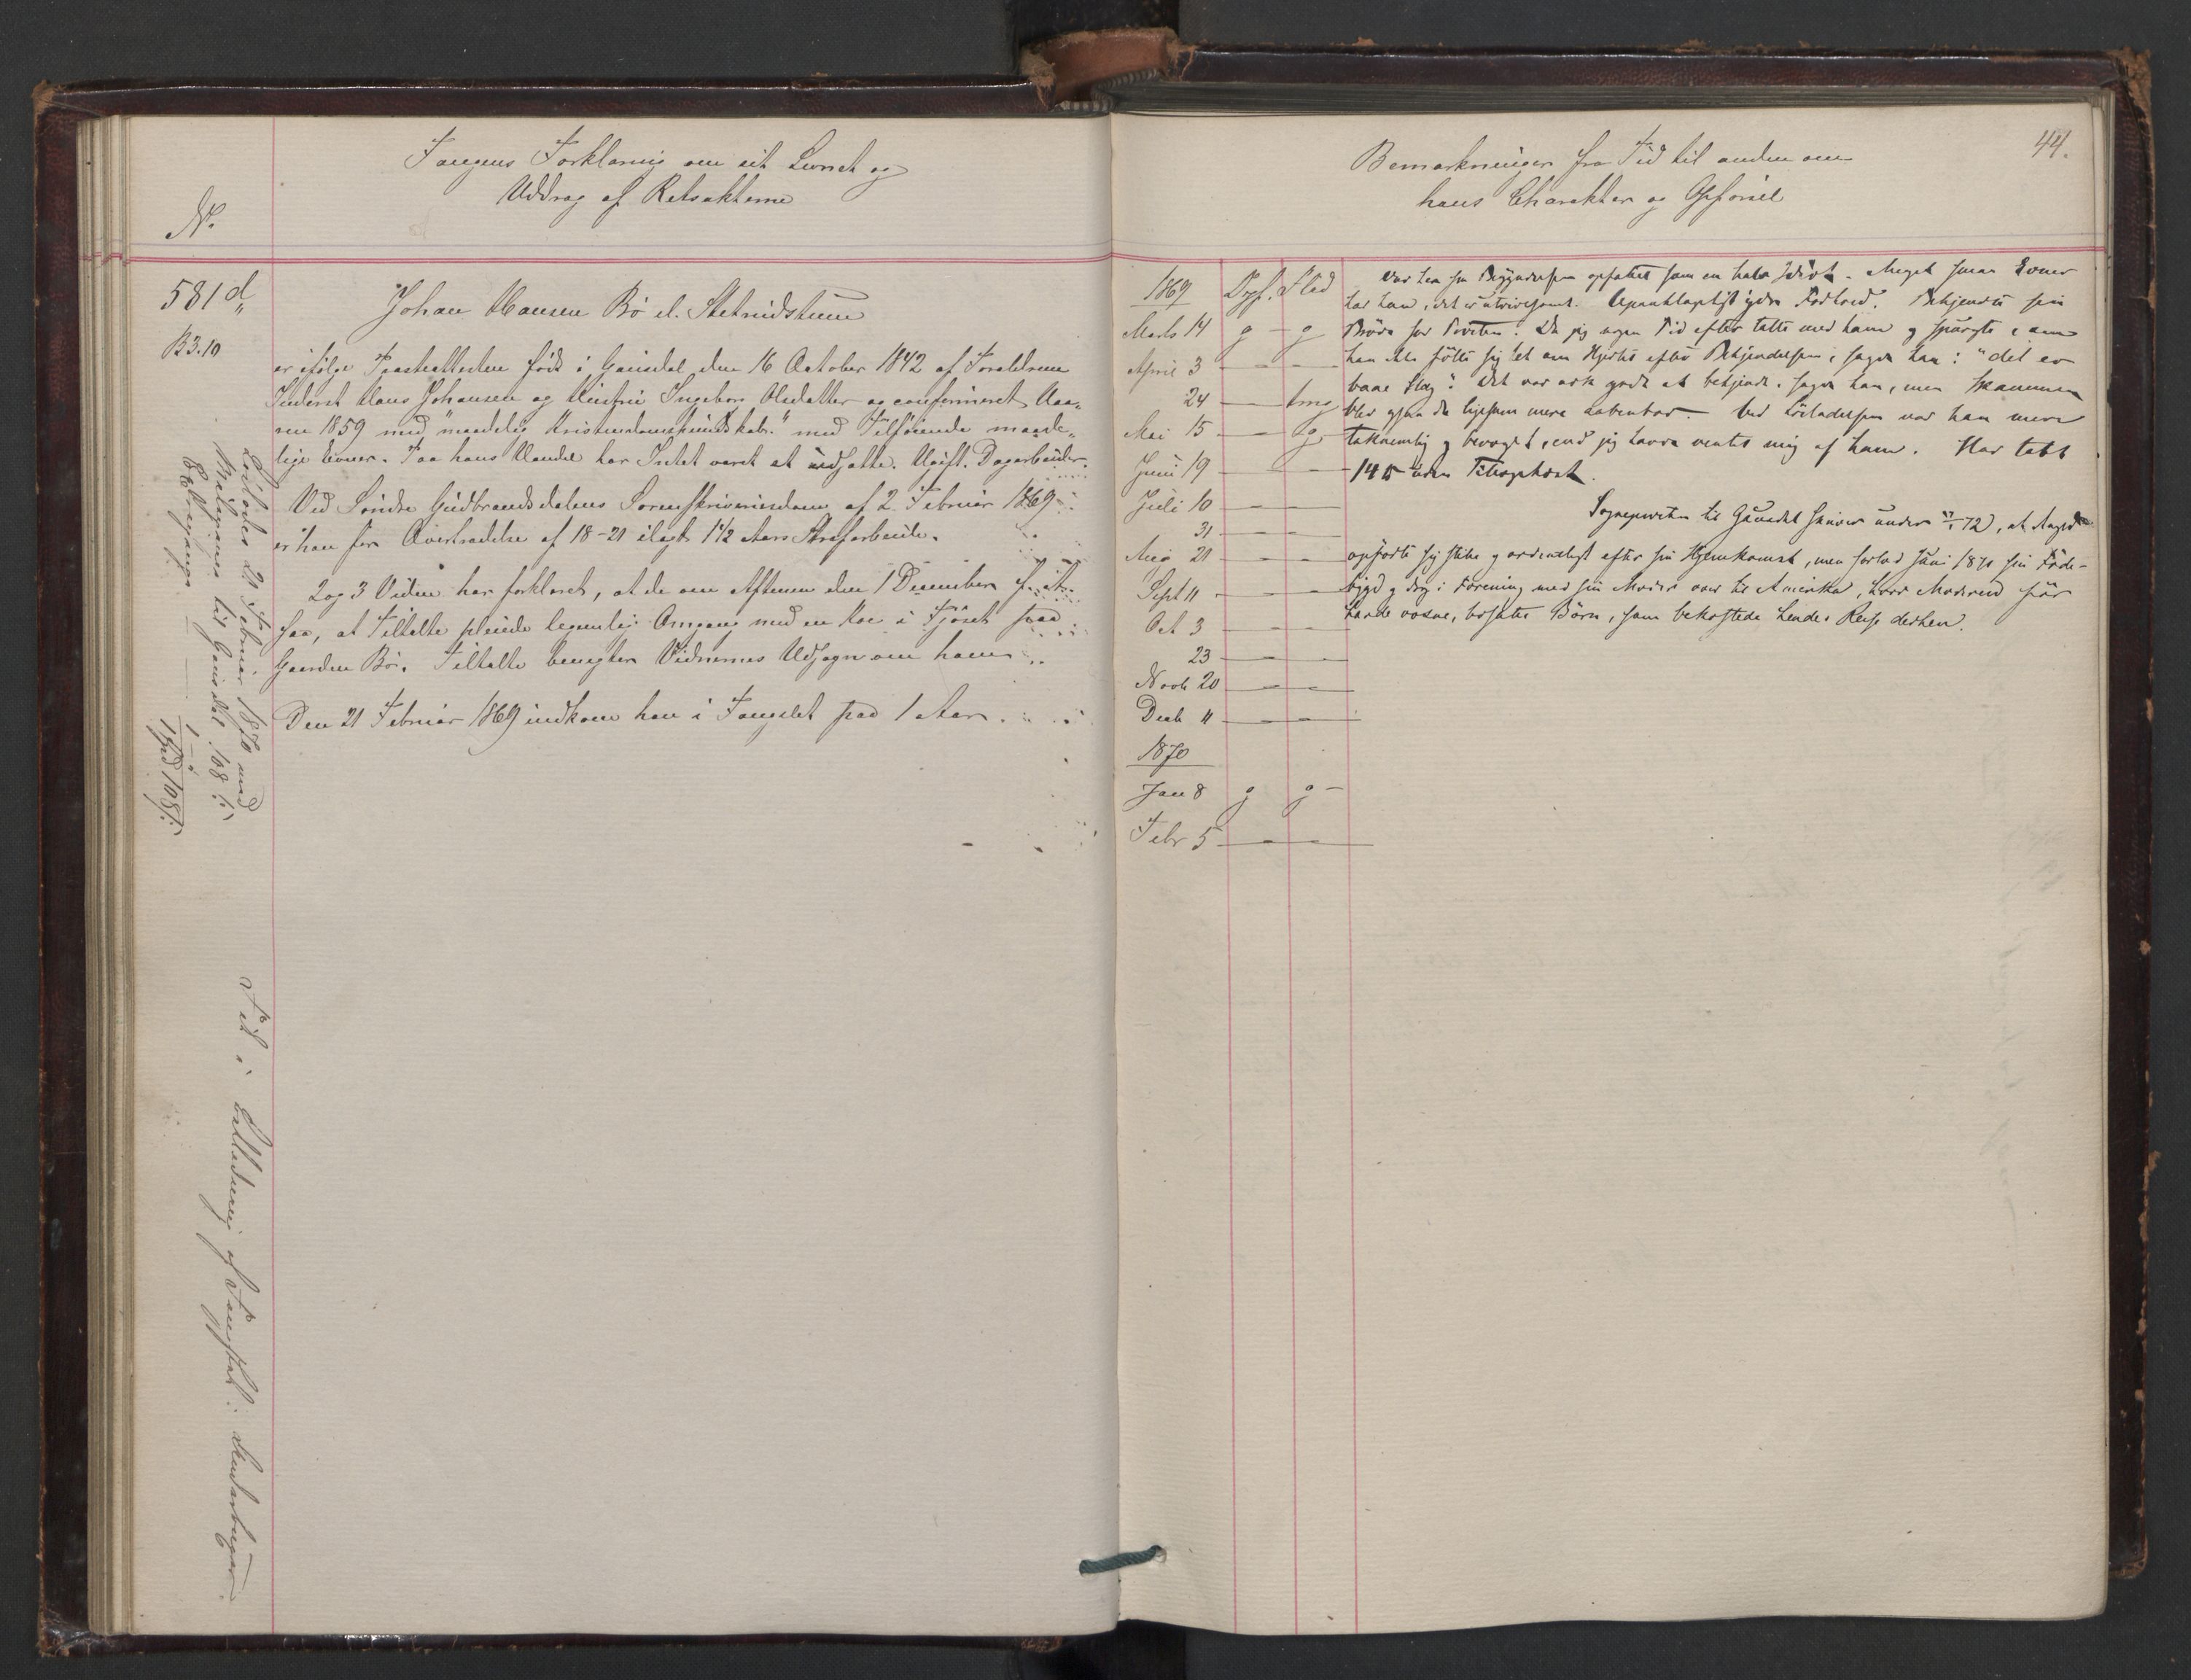 Fangens Forklaring om sit Levnet og
Uddrag af Retsakterne
No.
581 d
B3.10
Johan Hansen Bø el.
er ifølge Præsteattesten født i Gausdal den 16 October 1842 af Forældrene
Inderst Hans Johansen og Hustru Ingebor Olsdatter og confirmeret Aa-
ren 1859 med "maadelig Kristendomskundskab" med Tilføiende maade-
lige Evner. Paa hans Vandel har Intet været at udsætte. Ugift. Dagarbeider.
Ved Søndre Gudbrandsdalens Sorenskriverisdom af 2 Februar 1869
er han for Overtrædelse af 18-21 ilagt 1 1/2 Aars Strafarbeide.
2 og 3 Vidne har forklaret, at de om Aftenen den 1 December f. A.
saa, at Tiltalte pleiede legemlig Omgang med en Koe i Fjøset paa
Gaarden Bø. Tiltalte benegter Vidnernes Udsagn om ham
Den 21 Februar 1869 indkom han i Fængslet paa 1 Aar.
Løslades 21 Februar 1870 med
til Gausdal 108 ß
1 - "
1 Spd 108 ß
Fik i af Fængslet: Andagtsbøger
44.
Bemærkninger fra Tid til anden om
hans Charakter og Opførsel
1869 Opf. Flid
Marts 14 g - g
April 3 - -
24 - tmg
Mai 15 - g
Juni 19 - -
Juli 10 - -
31 - -
Aug 21 - -
Sept 11 - -
Oct 3 - -
23 - -
Novb 20 - -
Decb 11 - -
1870
Jan 8 g g -
Febr 5 - -
Var han fra Begyndelsen opfattet som en halv Idiot. Meget smaa Evner
har han, det er utvivlsomt. Bekjendte sin
Brøde for Præsten. Da jeg nogen Tid efter talte med ham og spurgte, om
han ikke følte sig let om Hjertet efter Bekjendelsen, sagde han: "det er
baae Slag". Det var nok godt at bekjende, sagde han, men Skammen
blev da ligesom mere aabenbar. Ved Løsladelsen var han mere
taknemlig og bevæget, end jeg havde ventet mig af ham. Har tabt
14
Sognepresten til Gausdal skriver under 72, at
opførte sig stille og ordentligt efter sin Hjemkomst, men forlod Juni 1870 sin Føde-
bygd og drog i Forening med sin Moder over til Amerika, hvor Moderen før
havde voxne, bosatte Børn, som bekostede hendes Reise derhen.